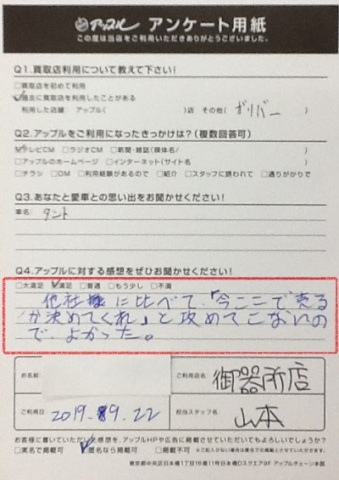 アップル アンケート用紙
この度は当店をご利用いただきありがとうございました。
Q1.買取店利用について教えて下さい!
□買取店を初めて利用
☑過去に買取店を利用したことがある
利用した店舗 アップル( )店 その他( ガリバー )
Q2.アップルをご利用になったきっかけは?(複数回答可)
☑テレビCM □ラジオCM □新聞・雑誌(媒体名/ )
□アップルのホームページ □インターネット(サイト名 )
□チラシ □DM □利用経験があるので □紹介 □スタッフに誘われて □通りがかりで
Q3.あなたと愛車との思い出をお聞かせください!
車名: タント
Q4.アップルに対する感想をぜひお聞かせください!
□大満足 ☑満足 □普通 □もう少し □不満
他社様に比べて、「今ここで売る
か決めてくれ」と攻めてこないの
で、よかった。
お名前
ご利用店名 御器所店
ご利用日 2019.09.22
担当スタッフ名 山本
お客様に書いていただいた感想を、アップルHPや広告に掲載させていただいてもよろしいでしょうか?
□実名で掲載可 ☑匿名なら掲載可 □掲載不可
東京都中央区日本橋1丁目16番11号日本橋Dスクエア9F アップルチェーン本部